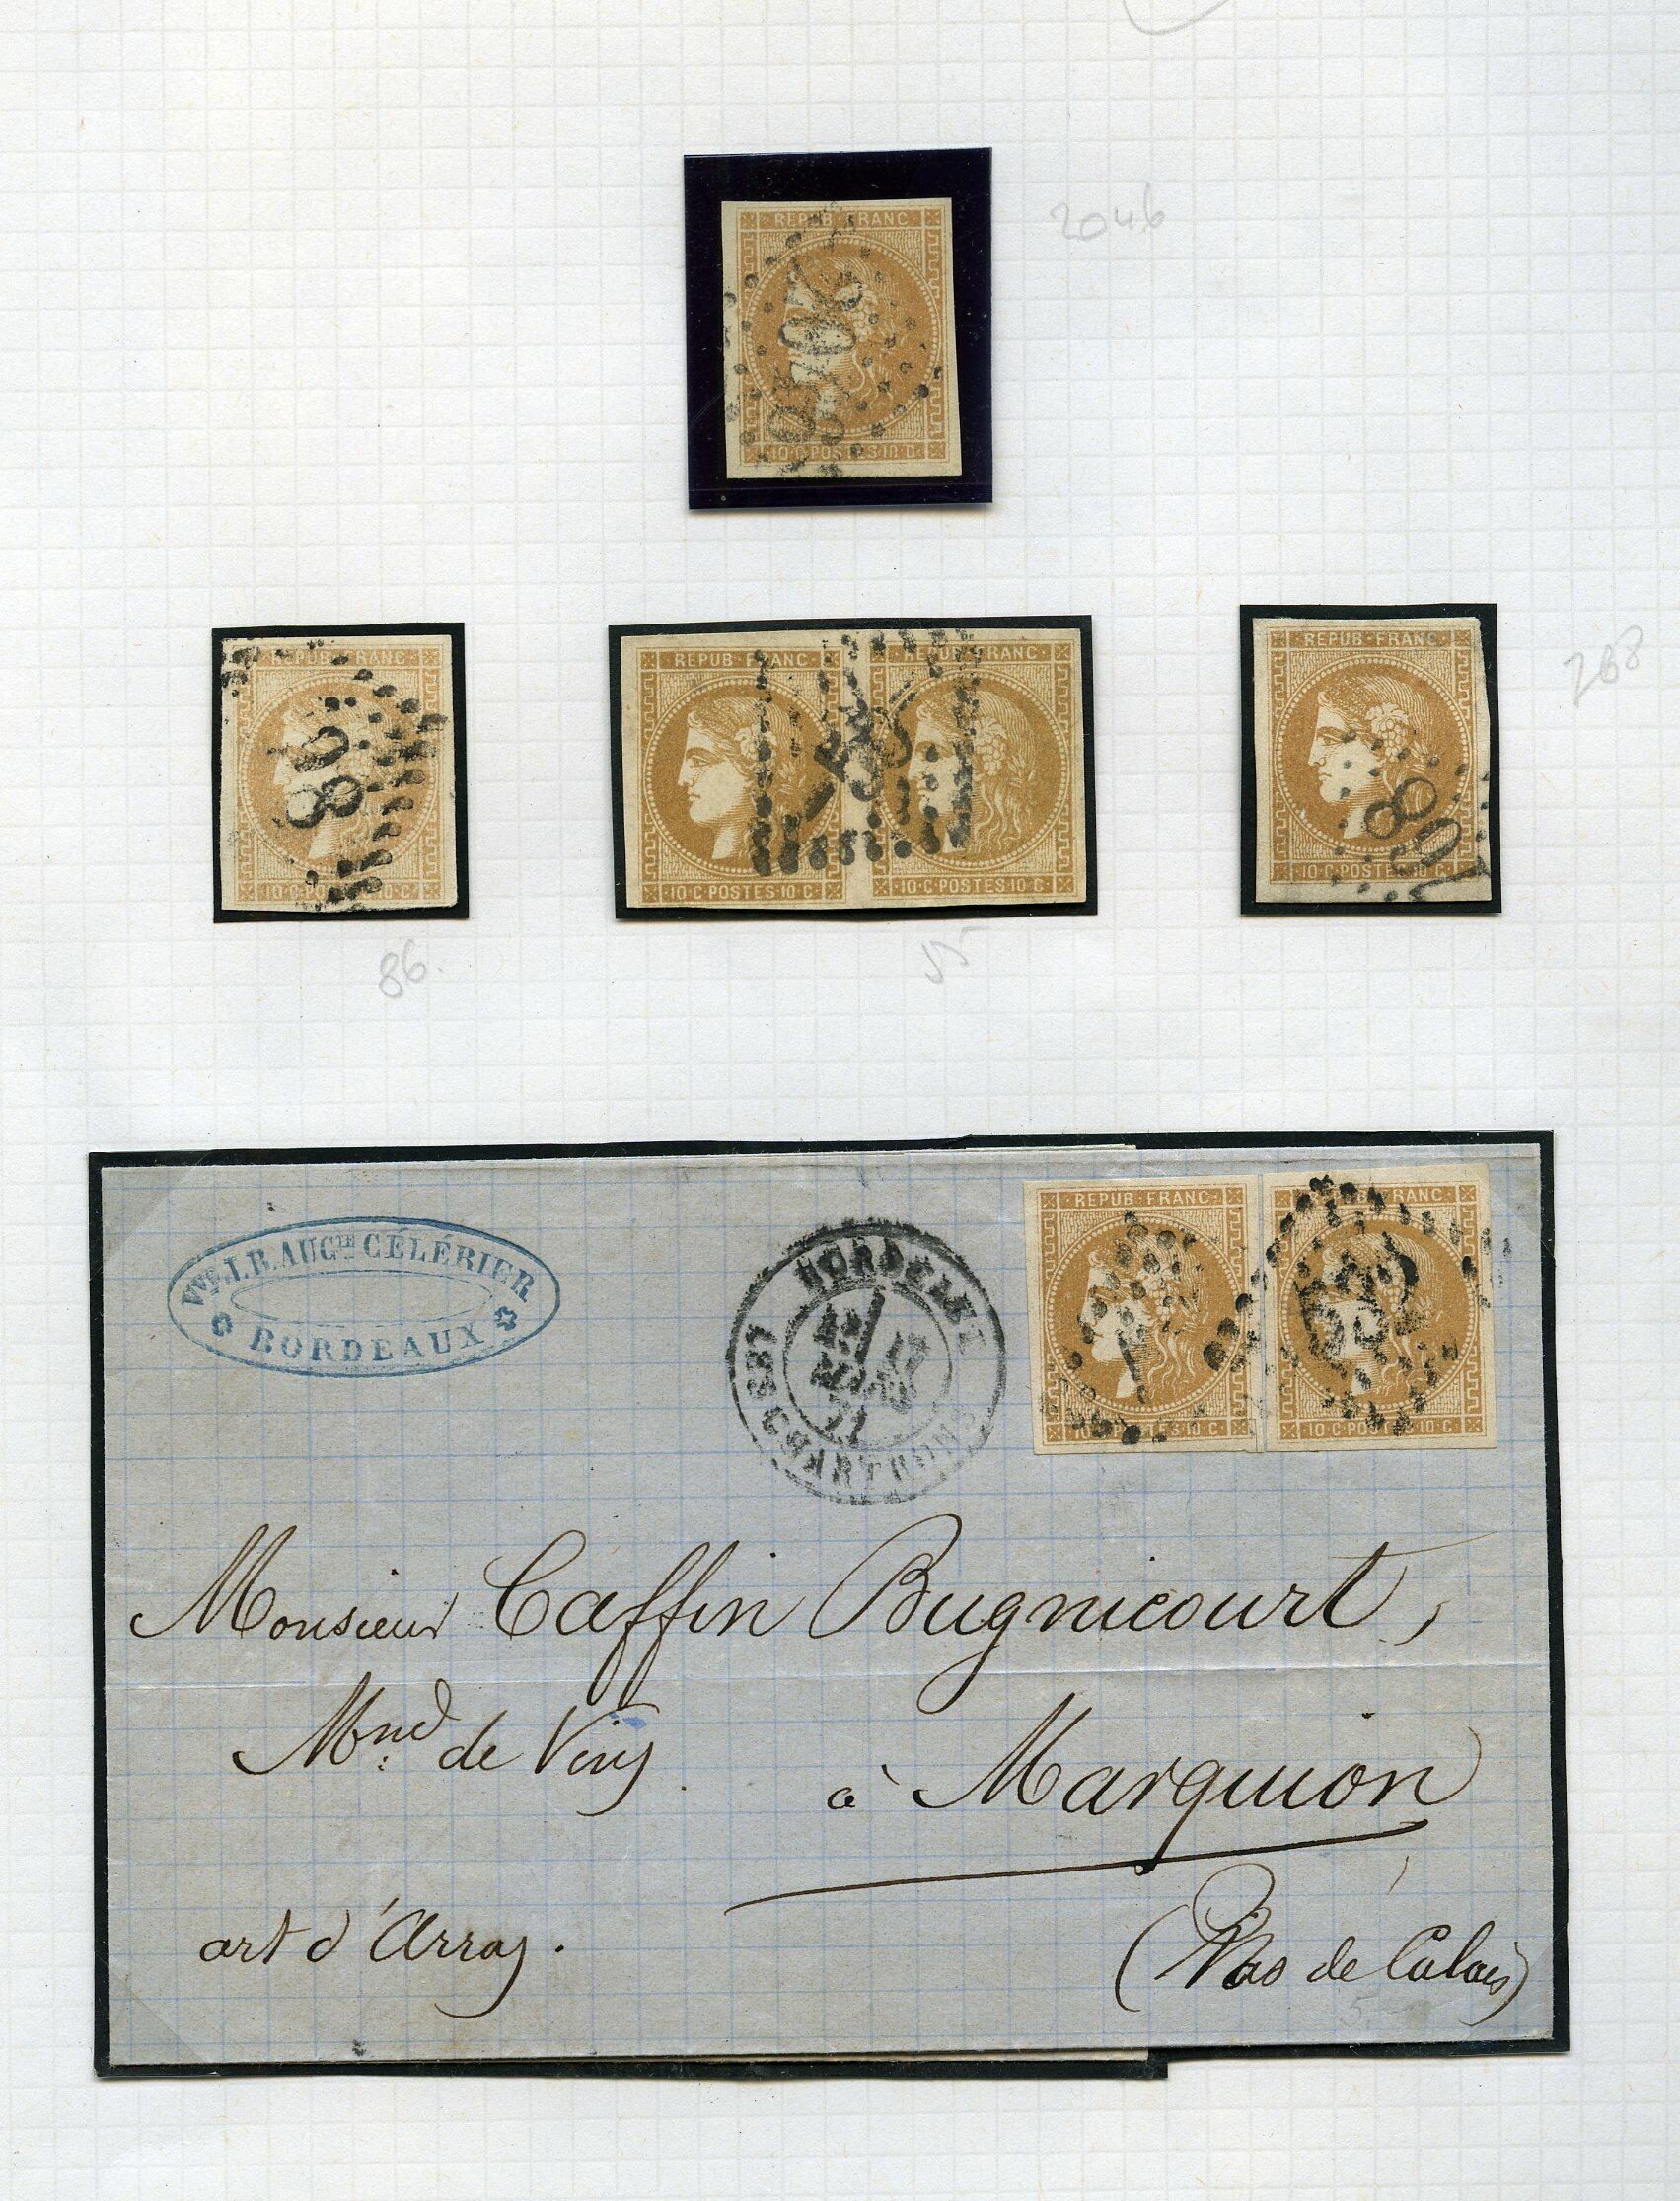 REPUB FRANC
10·C·POSTES·10·C
2046
REPUB·FRANC
10·C·POSTES·10·C
86.
REPUB·FRANC
REPUB·FRANC
10·C·POSTES·10·C
10·C·POSTES·10·C
55
REPUB·FRANC
10·C·POSTES·10·C
268
Vve J.B. AUGTE CELÉRIER
BORDEAUX
BORDEAUX
71
LES CHARTRONS
REPUB·FRANC
FRANC
532
10 C
10·C·POSTES·10·C
Monsieur Caffin Bugnicourt,
Mnd de Vins.
à Marquion
art d'Arras.
(Pas de Calais)